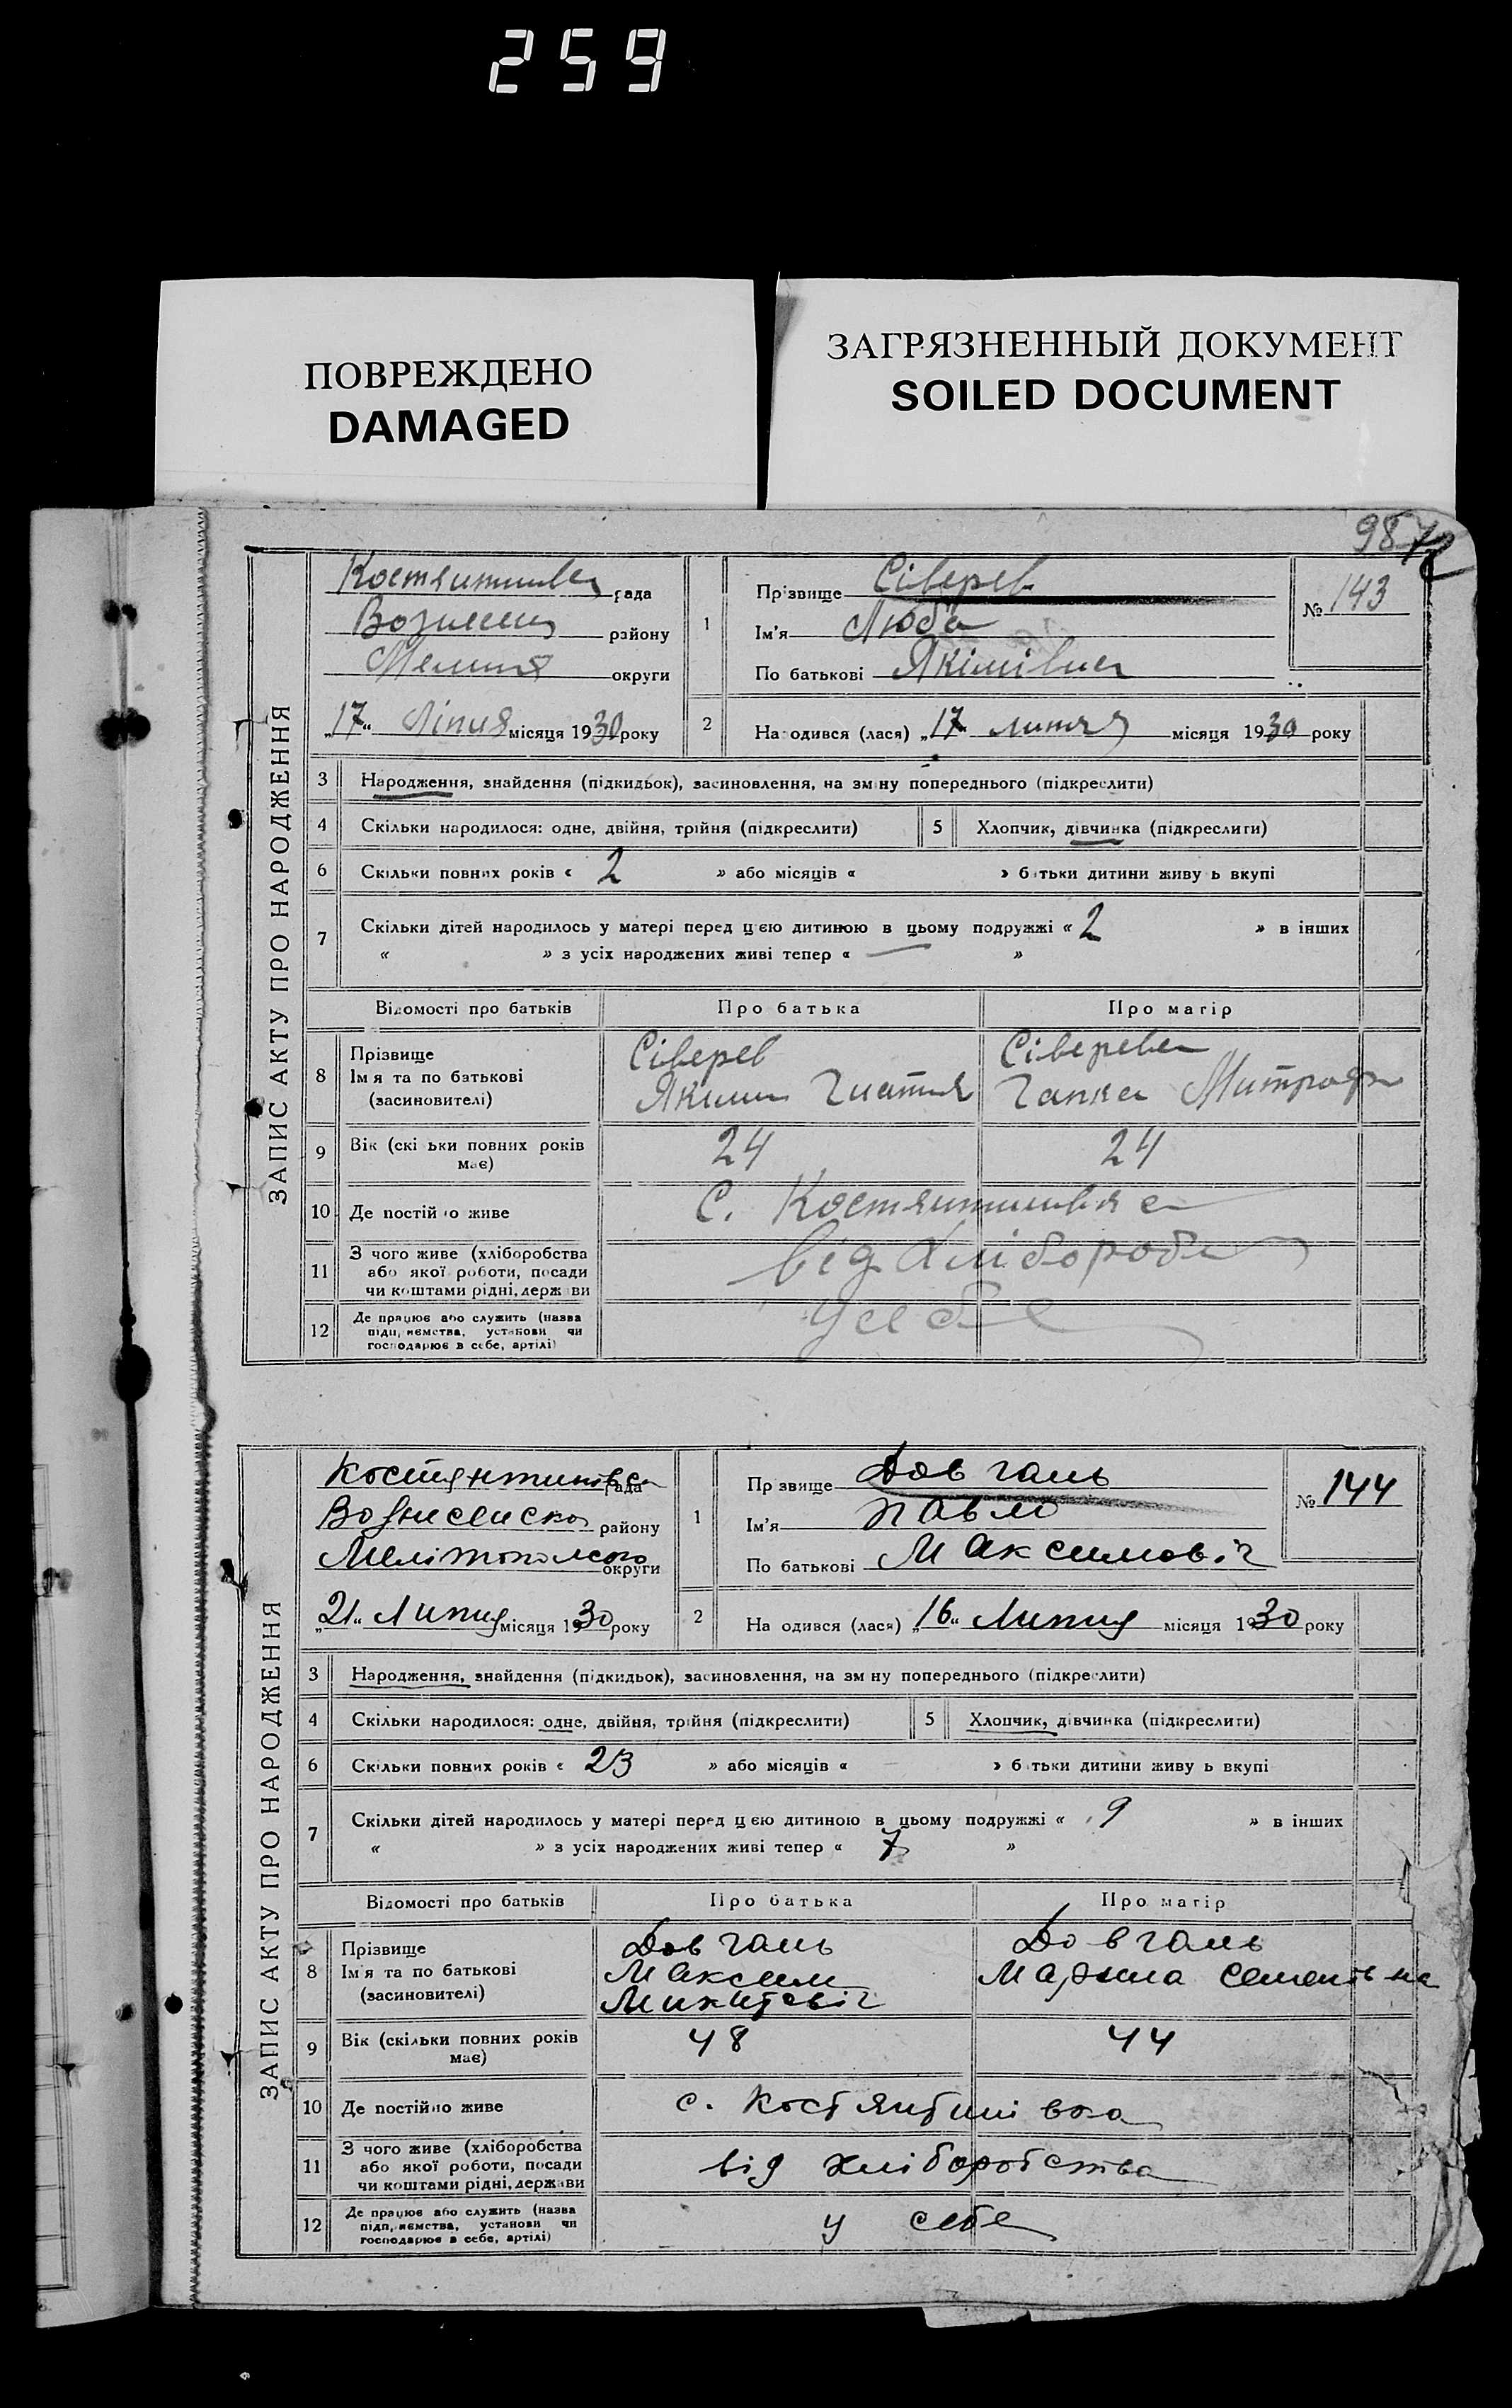 259
ПОВРЕЖДЕНО
DAMAGED
ЗАГРЯЗНЕННЫЙ ДОКУМЕНТ
SOILED DOCUMENT
98
ЗАПИС АКТУ ПРО НАРОДЖЕННЯ
рада
району
округи
„17“ Ліпня місяця 1930 року
1
Прізвище Сіверев
Ім'я Люба
По батькові Якімівна
№ 143
2
Народився (лася) „17“ липня місяця 1930 року
3 Народження, знайдення (підкидьок), засиновлення, на зміну попереднього (підкреслити)
4 Скільки народилося: одне, двійня, трійня (підкреслити)
5 Хлопчик, дівчинка (підкреслити)
6 Скільки повних років « 2 » або місяців « » батьки дитини живуть вкупі
7 Скільки дітей народилось у матері перед цією дитиною в цьому подружжі « 2 » в інших
« » з усіх народжених живі тепер « — »
Відомості про батьків Про батька Про матір
8 Прізвище
Ім'я та по батькові
(засиновителі)
Сіверев
Яким Гнатія
Сіверева
Гапка Митроф
9 Вік (скільки повних років має) 24 24
10 Де постійно живе С. Костянтинівка
11 З чого живе (хліборобства або якої роботи, посади чи коштами рідні, держави від хлібороб
12 Де працює або служить (назва підприємства, установи чи господарює в себе, артілі) У себе
ЗАПИС АКТУ ПРО НАРОДЖЕННЯ
Костянтинівса рада
Вознесенско району
Мелітополсого округи
„21“ Липня місяця 1930 року
1
Прізвище Довгань
Ім'я Павло
По батькові Максимовіч
№ 144
2
Народився (лася) „16“ Липня місяця 1930 року
3 Народження, знайдення (підкидьок), засиновлення, на зміну попереднього (підкреслити)
4 Скільки народилося: одне, двійня, трійня (підкреслити)
5 Хлопчик, дівчинка (підкреслити)
6 Скільки повних років « 23 » або місяців « » батьки дитини живуть вкупі
7 Скільки дітей народилось у матері перед цією дитиною в цьому подружжі « 9 » в інших
« » з усіх народжених живі тепер « 7 »
Відомості про батьків Про батька Про матір
8 Прізвище
Ім'я та по батькові
(засиновителі)
Довгань
Максим
Микитовіч
Довгань
Семенівна
9 Вік (скільки повних років має) 48 44
10 Де постійно живе с. Костянтинівка
11 З чого живе (хліборобства або якої роботи, посади чи коштами рідні, держави від хліборобства
12 Де працює або служить (назва підприємства, установи чи господарює в себе, артілі) у себе